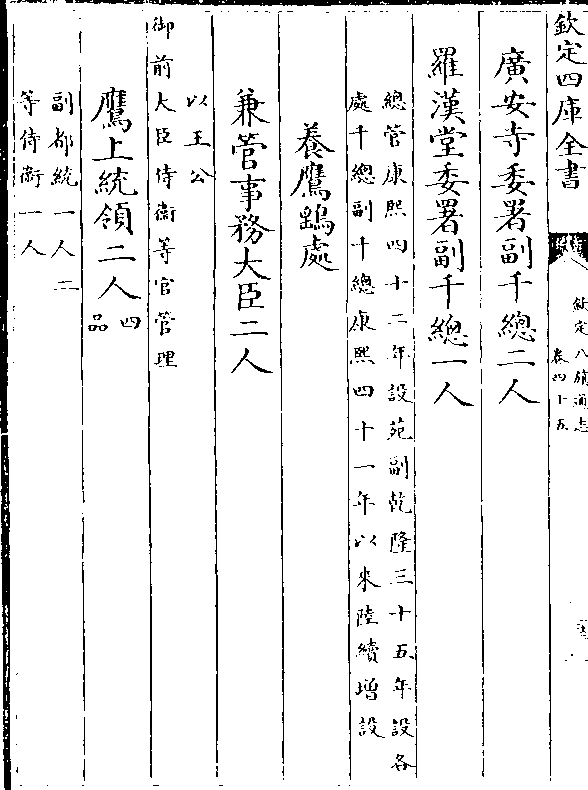 欽定四庫全書
欽定八旗通志
卷四十五
廣安寺委署副千總二人
羅漢堂委署副千總一人
總管康熙四十二年設苑副乾隆三十五年設各
處千總副千總康熙四十一年以來陸續增設
養鷹鷂處
兼管事務大臣二人
以王公
御前大臣侍衛等官管理
鷹上統領二人
四
品
副都統一人二
等侍衛一人